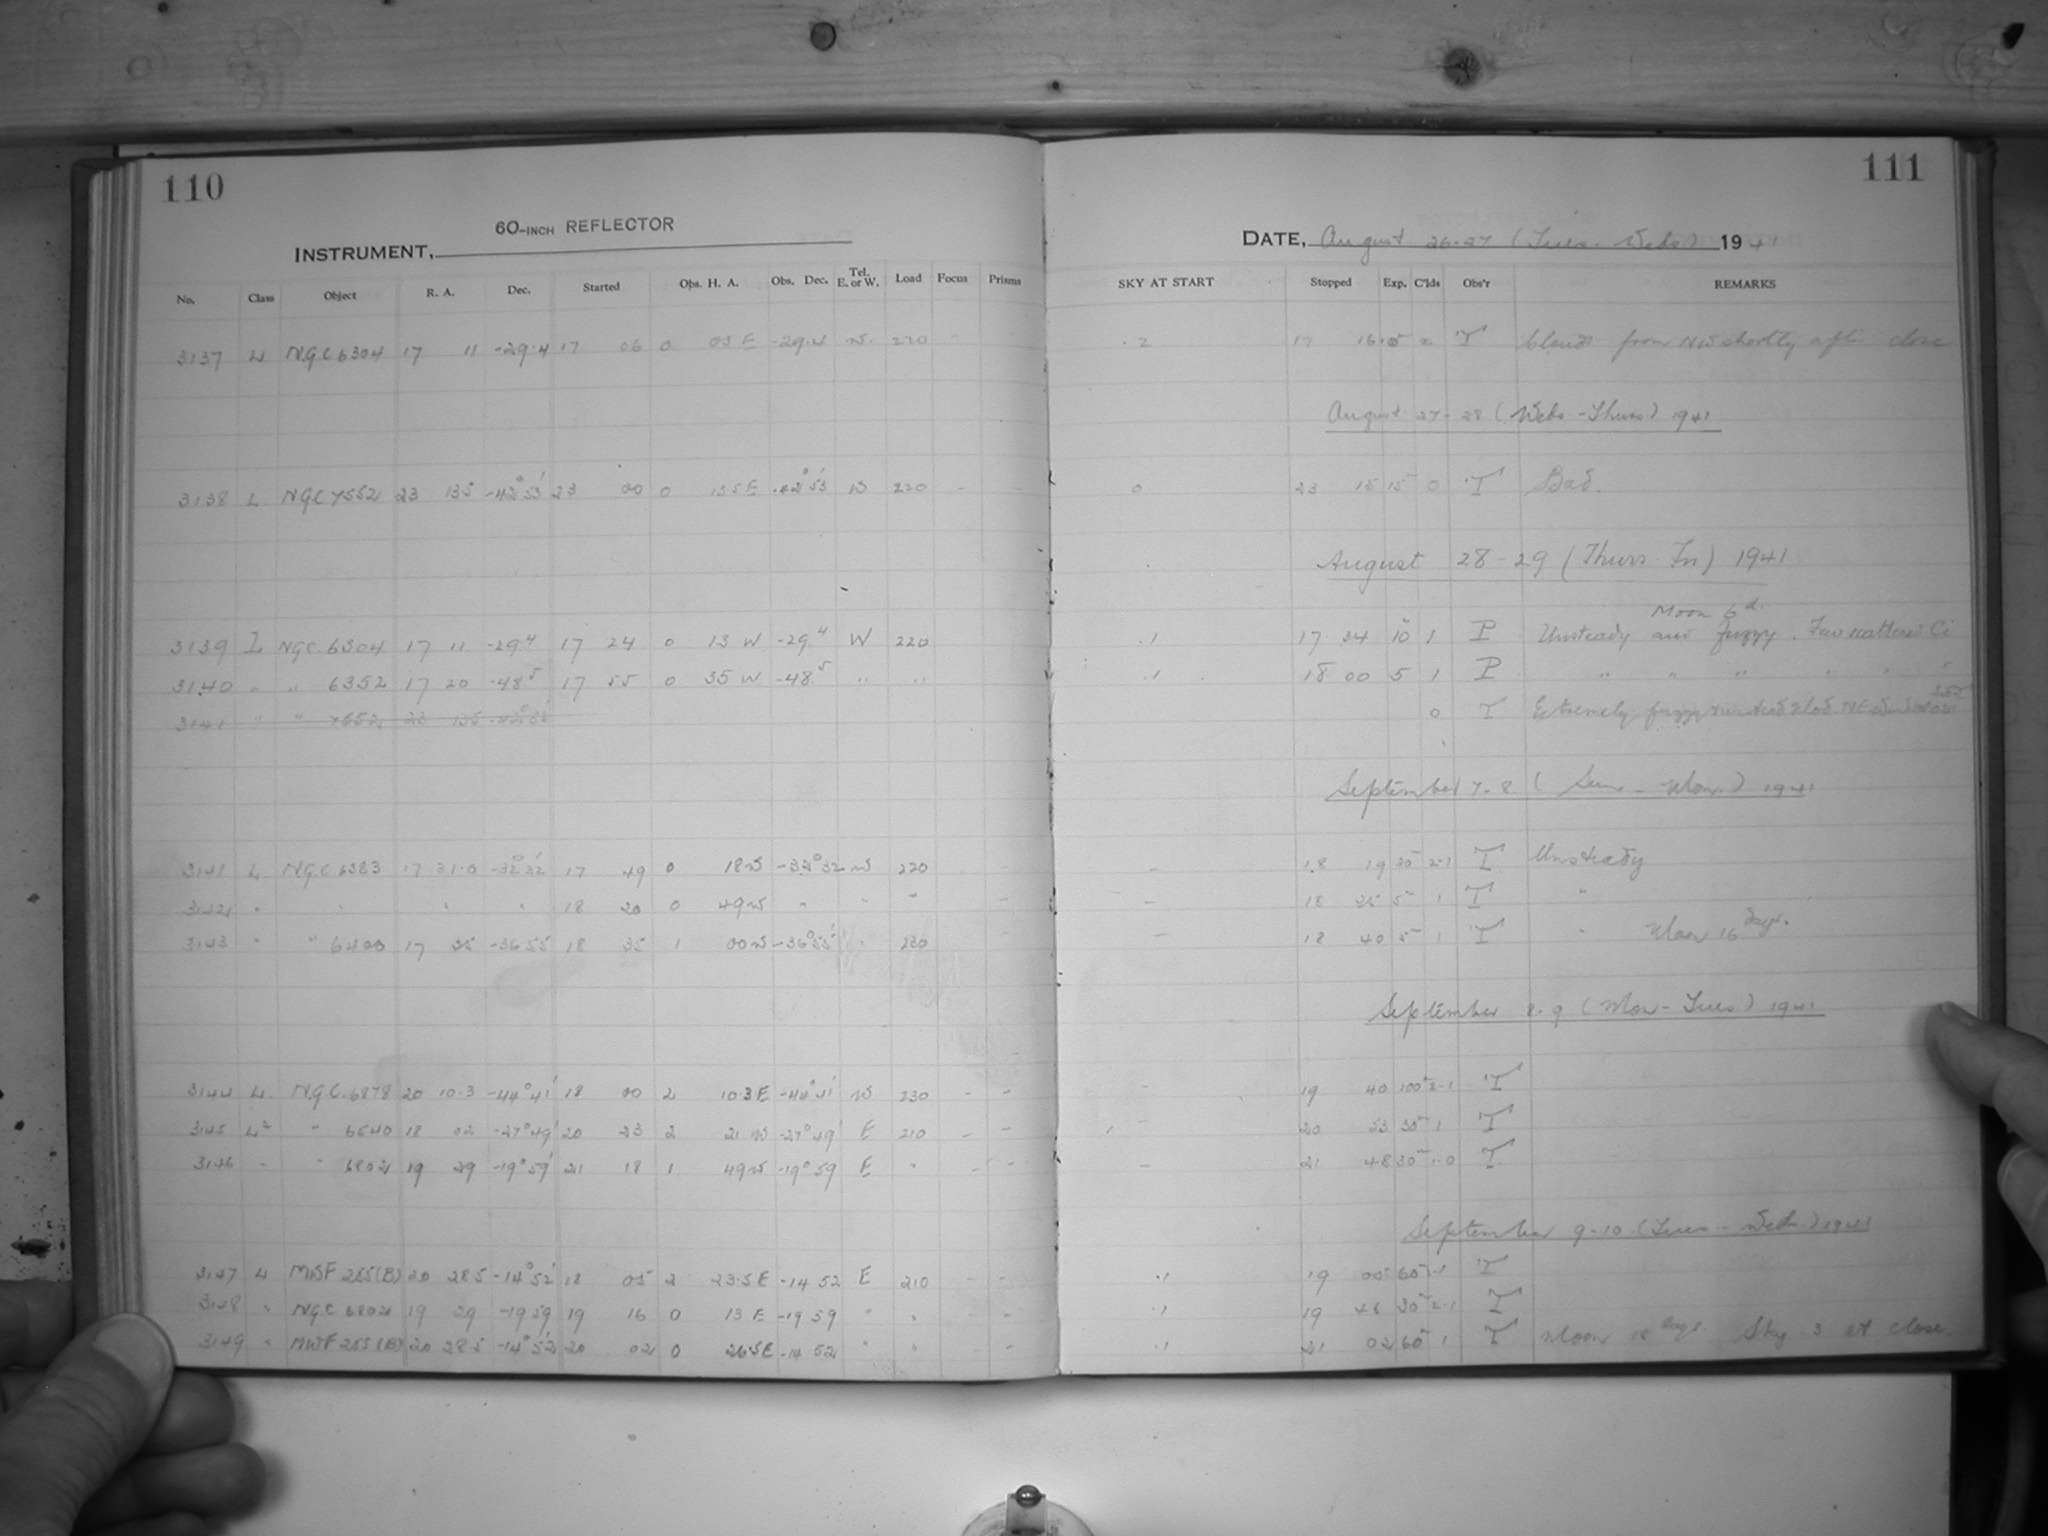 110
60-INCH REFLECTOR
INSTRUMENT,
No. Class Object R. A. Dec. Started Obs. H. A. Obs. Dec. Tel. E. or W. Load Focus Prisms
3137 L NGC 6304 17 11 -29.4 17 06 0 05 E -29.4 W. 220 -
3138 L NGC 7552 23 135 -42° 53' 23 00 0 135 E -42° 53' W 220 - -
3139 L NGC. 6304 17 11 -29.4 17 24 0 13 W -29.4 W 220
3140 " " 6352 17 20 -48.5 17 55 0 35 W -48.5 " "
3141 " " 7552 23 135 -42° 53'
3141 L NGC 6383 17 31.0 -32° 32' 17 49 0 18 W -32° 32 W 220
3142 " " " " 18 20 0 49 W " " "
3143 " " 6400 17 35 -36 55 18 35 1 00 W -36° 55' " 230
3144 L NGC. 6878 20 10.3 -44° 41' 18 00 2 10.3 E -44° 41' W 230 - -
3145 L² " 6540 18 02 -27° 49' 20 23 2 21 W -27° 49' E 210 - -
3146 " " 6802 19 29 -19° 59' 21 18 1 49 W -19° 59 E " - -
3147 L MWF 255(B) 20 285 -14° 52' 18 05 2 23.5 E -14 52 E 210 - -
3148 " NGC 6802 19 29 -19 59 19 16 0 13 E -19 59 " " - -
3149 " MWF 255(B) 20 28.5 -14° 52' 20 02 0 26.5 E -14 52 " " - -
111
DATE, August 26-27 (Tues. Weds) 1941
SKY AT START Stopped Exp. C'lds Obs'r REMARKS
.2 17 16 T Clouds from NW shortly after close
August 27-28 (Weds-Thurs) 1941
0 23 15 15 0 T Bad.
August 28-29 (Thurs. Fri) 1941
Moon 6 d.
.1 17 34 10 1 P Unsteady and fuzzy. Few scattered Ci
.1 18 00 5 1 P " " " " "
0 T Extremely fuzzy
September 7-8. (Sun - Mon.) 1941
- 18 19 30 2-1 T Unsteady
- 18 25 5 1 T "
- 18 40 5 1 T " Moon 16 days.
September 8-9 (Mon-Tues.) 1941
- 19 40 100 2-1 T
- 20 53 30 1 T
- 21 48 30 1-0 T
September 9-10 (Tues - Weds.) 1941
.1 19 05 60 T
.1 19 46 30 2-1 T
.1 21 02 60 1 T Moon 18 days. Sky 3 at close